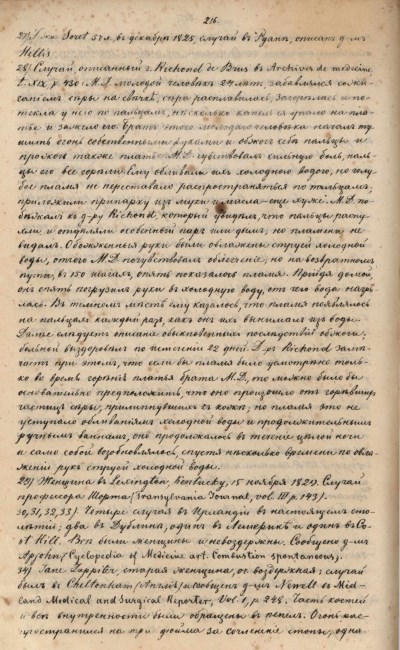 216.
27) Г-жа Soret 57 л., въ декабрѣ 1825, случай въ Руанѣ, описанъ д-мъ
Hellis
28) Случай, описанный г. Richond de Brus въ Archives de médecine
молодой человѣкъ 24 лѣтъ, забавлялся сожи-
ганіемъ сѣры на свѣчкѣ, сѣра расплавилась, загорѣлась и по-
текла у него по пальцамъ, нѣсколько капель упало на пла-
тье и зажгло его. Братъ этого молодого человѣка началъ ту-
шить огонь собственными руками и обжегъ себѣ пальцы и
прожогъ также платье. M.D. чувствовалъ сильную боль, паль-
цы его все горѣли. Ему обливали ихъ холодною водою, но голу-
бое пламя не переставало распространяться по пальцамъ,
приложили припарку изъ муки и масла — еще хуже. M.D. по-
бѣжалъ къ д-ру Richond, который увидѣлъ, что пальцы распу-
хли и отдѣляли особенный паръ или дымъ, но пламени не
видалъ. Обожженныя руки были обложены струей холодной
воды, отчего M.D. почувствовалъ облегченіе, но на возвратномъ
пути, въ 150 шагахъ, опять показалось пламя. Прійдя домой,
онъ опять погрузилъ руки въ холодную воду, отъ чего вода нагрѣ-
лась. Въ темномъ мѣстѣ ему казалось, что пламя появлялось
на пальцахъ каждый разъ, какъ онъ ихъ вынималъ изъ воды.
Далѣе слѣдуетъ описаніе обыкновенныхъ послѣдствій обжоги.
больной выздоровѣлъ по истеченіи 22 дней. Д-ръ Richond замѣ-
чаетъ при этомъ, что если бы пламя было усмотрѣно толь-
ко во время горѣнія платья брата M.D., то можно было бы
основательно предположить, что оно произошло отъ горѣвшихъ
частицъ сѣры, прилипнувшихъ къ кожѣ; но пламя это не
уступало обливаніямъ холодной воды и продолжительнымъ
ручнымъ ваннамъ, оно продолжалось въ теченіе цѣлой ночи
и само собой возобновлялось, спустя нѣсколько времени по обло-
женіи рукъ струей холодной воды.
29) Женщина въ Lexington, Kentucky, 15 ноября 182 . Случай
профессора Шорта (Transylvania Journal, vol. III p. 143).
30, 31, 32, 33) Четыре случая въ Ирландіи въ настоящемъ сто-
лѣтіи: два въ Дублинѣ, одинъ въ Лемерикѣ и одинъ въ Co-
Hill. Всѣ были женщины и невоздержны. Сообщено д-мъ
Apjohn (Cyclopedia of Medicine art. Combustion spontaneous).
34) Jane старая женщина, оч. воздержная; случай
былъ въ Cheltenham (Англія) и сообщенъ д-мъ Newelt въ Mid-
land Medical and Surgical Reporter, Vol. 1, p. 228. Часть костей
и всѣ внутренности были обращены въ пепелъ. Огонь рас-
пространился на три дюйма за сочлененіе стопы, одна-